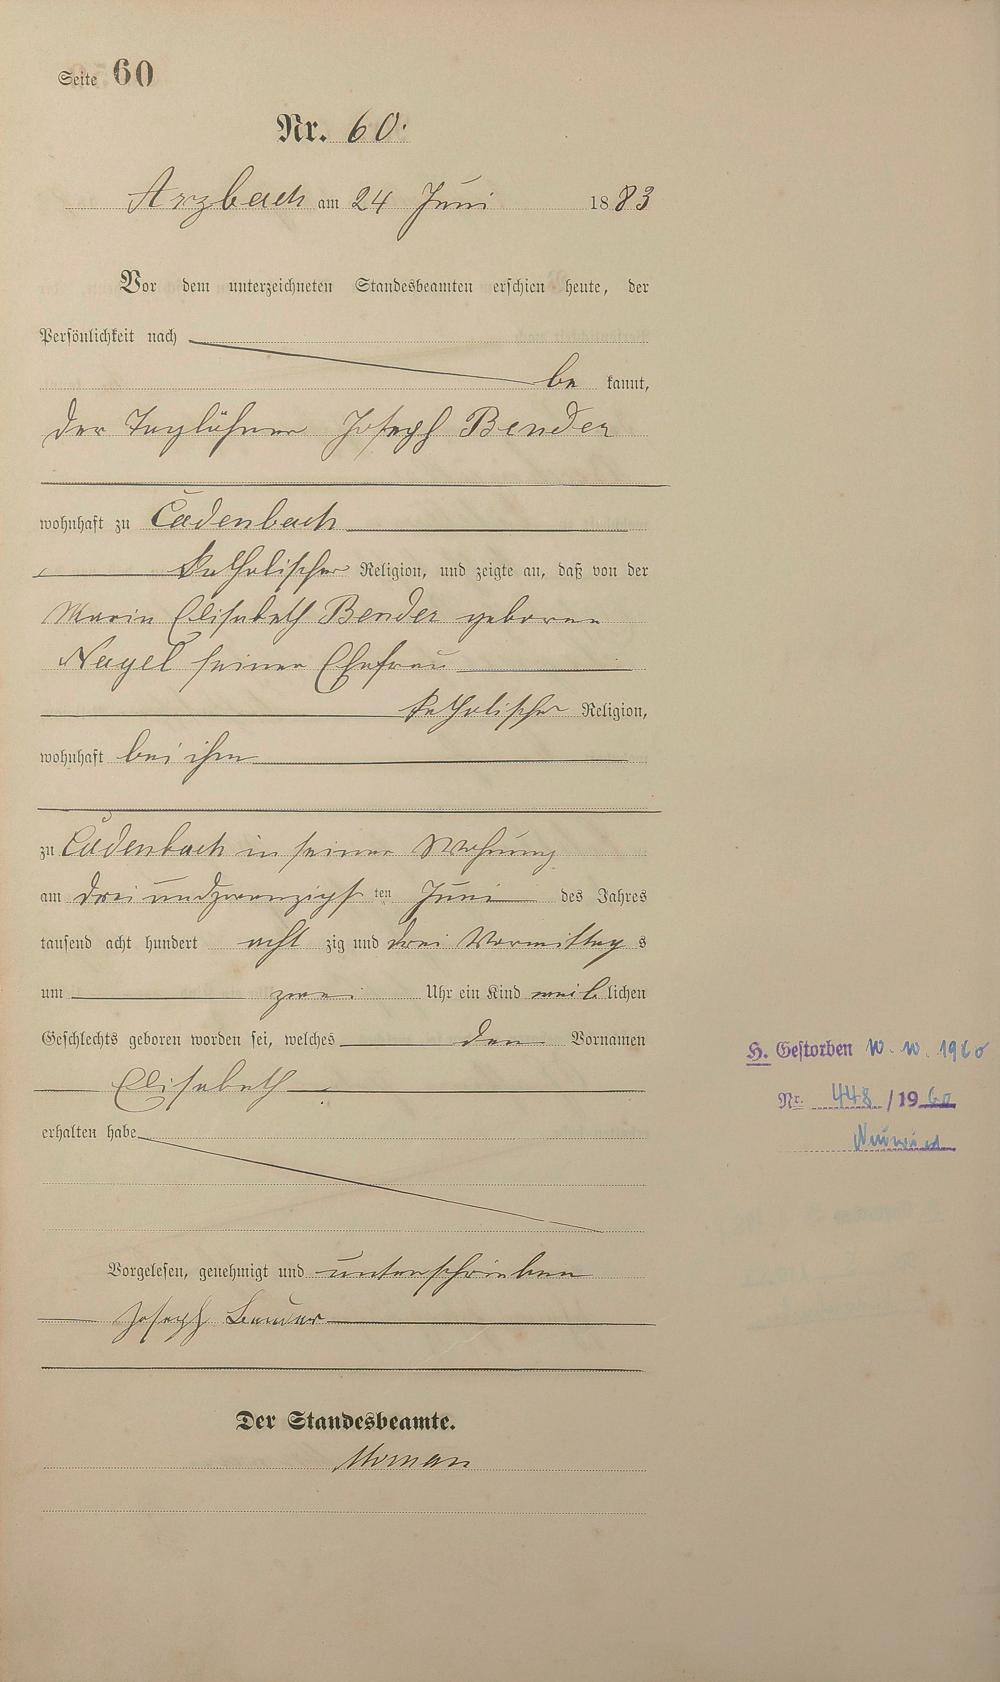 Seite 60
Nr. 60.
Arzbach am 24 Juni 1883
Vor dem unterzeichneten Standesbeamten erschien heute, der
Persönlichkeit nach
be kannt,
der Taglöhner Joseph Bender
wohnhaft zu Cadenbach
katholischer Religion, und zeigte an, daß von der
Maria Elisabeth Bender geborene
Nagel seiner Ehefrau
katholischer Religion,
wohnhaft bei ihm
zu Cadenbach in seiner Wohnung
am dreiundzwanzigsten Juni des Jahres
tausend acht hundert achtzig und drei Vormittags
um zwei Uhr ein Kind weiblichen
Geschlechts geboren worden sei, welches den Vornamen
Elisabeth
erhalten habe
Vorgelesen, genehmigt und unterschrieben
Joseph Bender
Der Standesbeamte.
H. Gestorben 10. 10. 1960
Nr. 448/1960
Neuwied